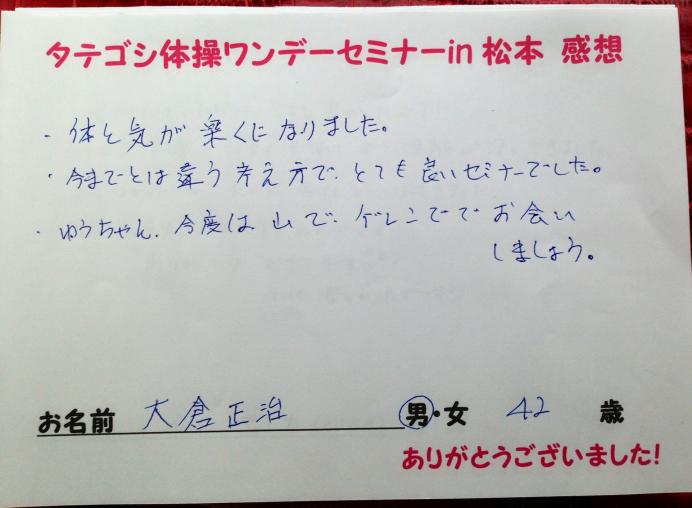 タテゴシ体操ワンデーセミナーin 松本 感想
・体と気が楽くになりました。
・今までとは違う考え方で、とても良いセミナーでした。
・ゆうちゃん、今度は山で、ゲレンデでお会い
しましょう。
お名前 大倉正治 男・女 42 歳
ありがとうございました!